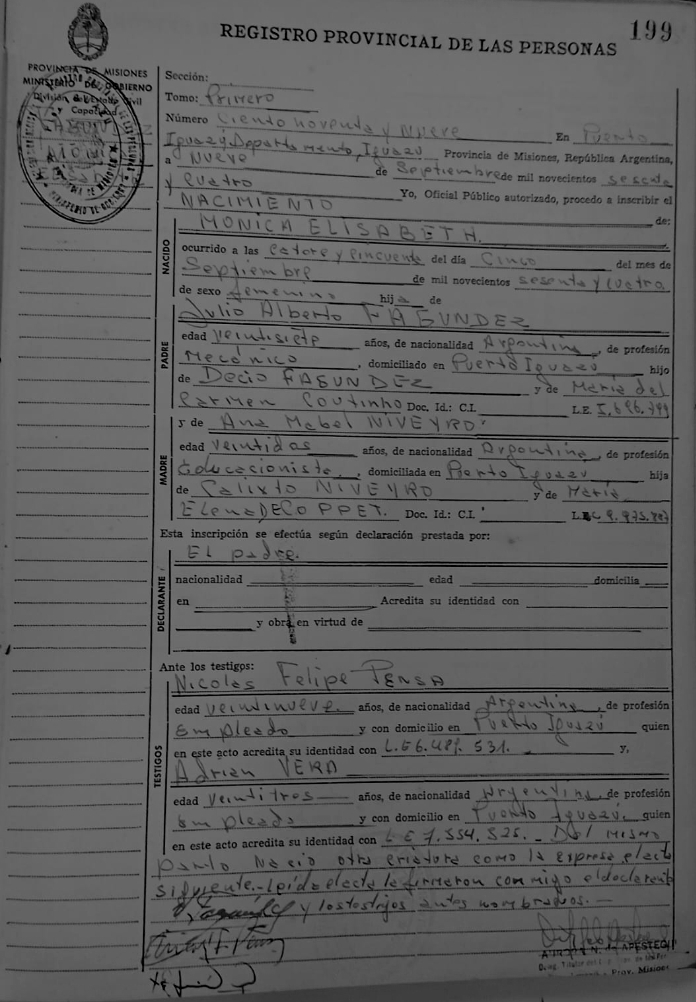 199
REGISTRO PROVINCIAL DE LAS PERSONAS
PROVINCIA DE MISIONES
MINISTERIO DE GOBIERNO
División del Estado Civil
y Capacidad
Sección:
Tomo: Primero
Número Ciento noventa y Nueve En Puerto
Iguazú, Departamento, Iguazú Provincia de Misiones, República Argentina,
a Nueve de Septiembre de mil novecientos sesenta
y cuatro Yo, Oficial Público autorizado, procedo a inscribir el
NACIMIENTO de:
NACIDO
MONICA ELISABETH.
ocurrido a las catorce y cincuenta del día Cinco del mes de
Septiembre de mil novecientos sesenta y cuatro
de sexo femenino hija de
PADRE
Julio Alberto FAGUNDEZ
edad veintisiete años, de nacionalidad Argentina, de profesión
Mecánico, domiciliado en Puerto Iguazú hijo
de Decio FAGUNDEZ y de María del
Carmen Coutinho Doc. Id.: C.I. L.E.
MADRE
y de Ana Mabel NIVEYRO
edad veintidos años, de nacionalidad Argentina, de profesión
Educacioniste, domiciliada en Puerto Iguazú hija
de Calixto NIVEYRO y de María
Elena DECOPPET. Doc. Id.: C.I.
Esta inscripción se efectúa según declaración prestada por:
DECLARANTE
El padre.
nacionalidad edad domicilia
en Acredita su identidad con
y obra en virtud de
Ante los testigos:
TESTIGOS
Nicolas Felipe PENSA
edad veintinueve. años, de nacionalidad Argentina, de profesión
empleado y con domicilio en Puerto Iguazú quien
en este acto acredita su identidad con L.E 6.489.531. y,
Adrian VERA
edad veintitres años, de nacionalidad Argentina, de profesión
empleado y con domicilio en Puerto Iguazú. quien
en este acto acredita su identidad con L E 7.554.525. - Del mismo
parto Nacio otra criatura como lo expresa el acta
siguiente.- Leída el acta la firmaron conmigo el declarante
y los testigos antes nombrados.-
APESTEGUI
Prov. Misiones